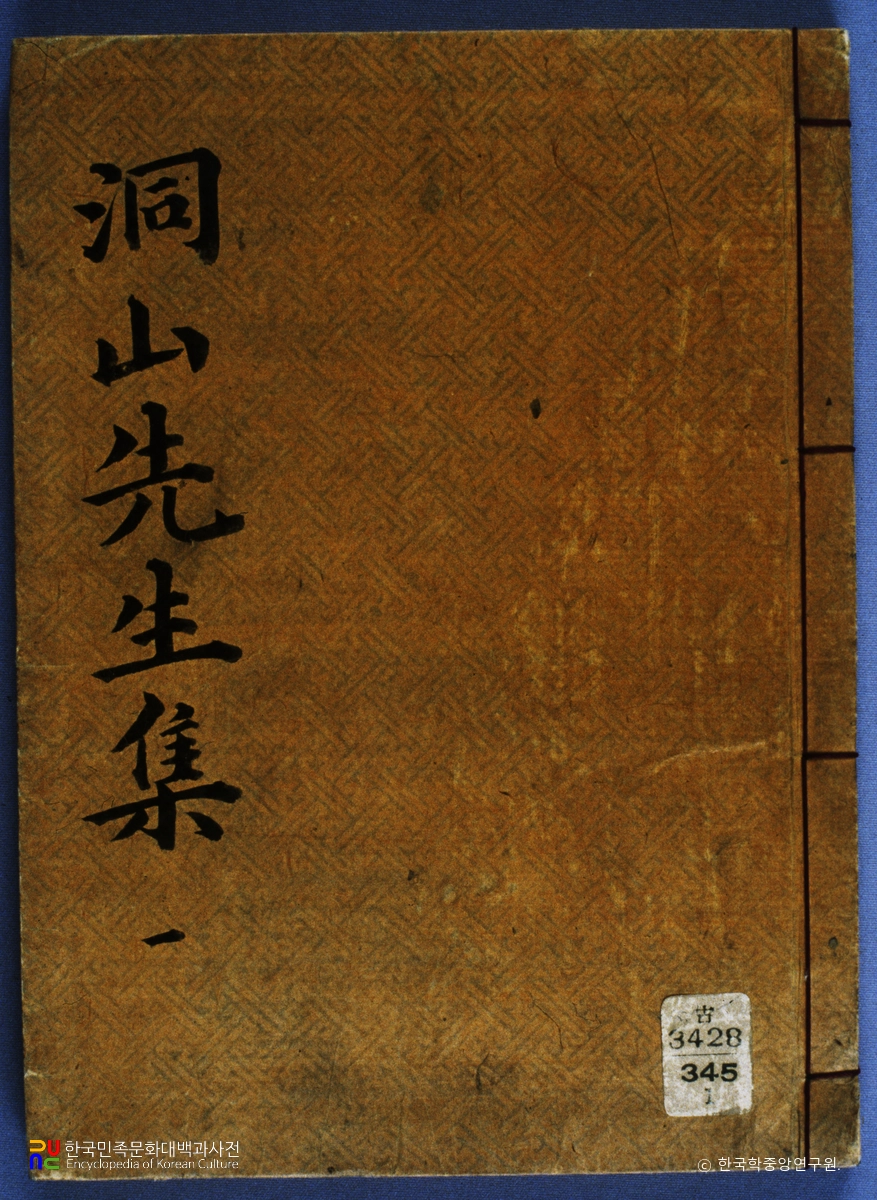 洞山先生集 一
古
3428
345
1
한국민족문화대백과사전
Encyclopedia of Korean Culture
© 한국학중앙연구원.